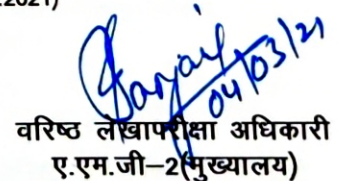 2021)
Sanjay
04/03/21
वरिष्ठ लेखापरीक्षा अधिकारी
ए.एम.जी–2(मुख्यालय)